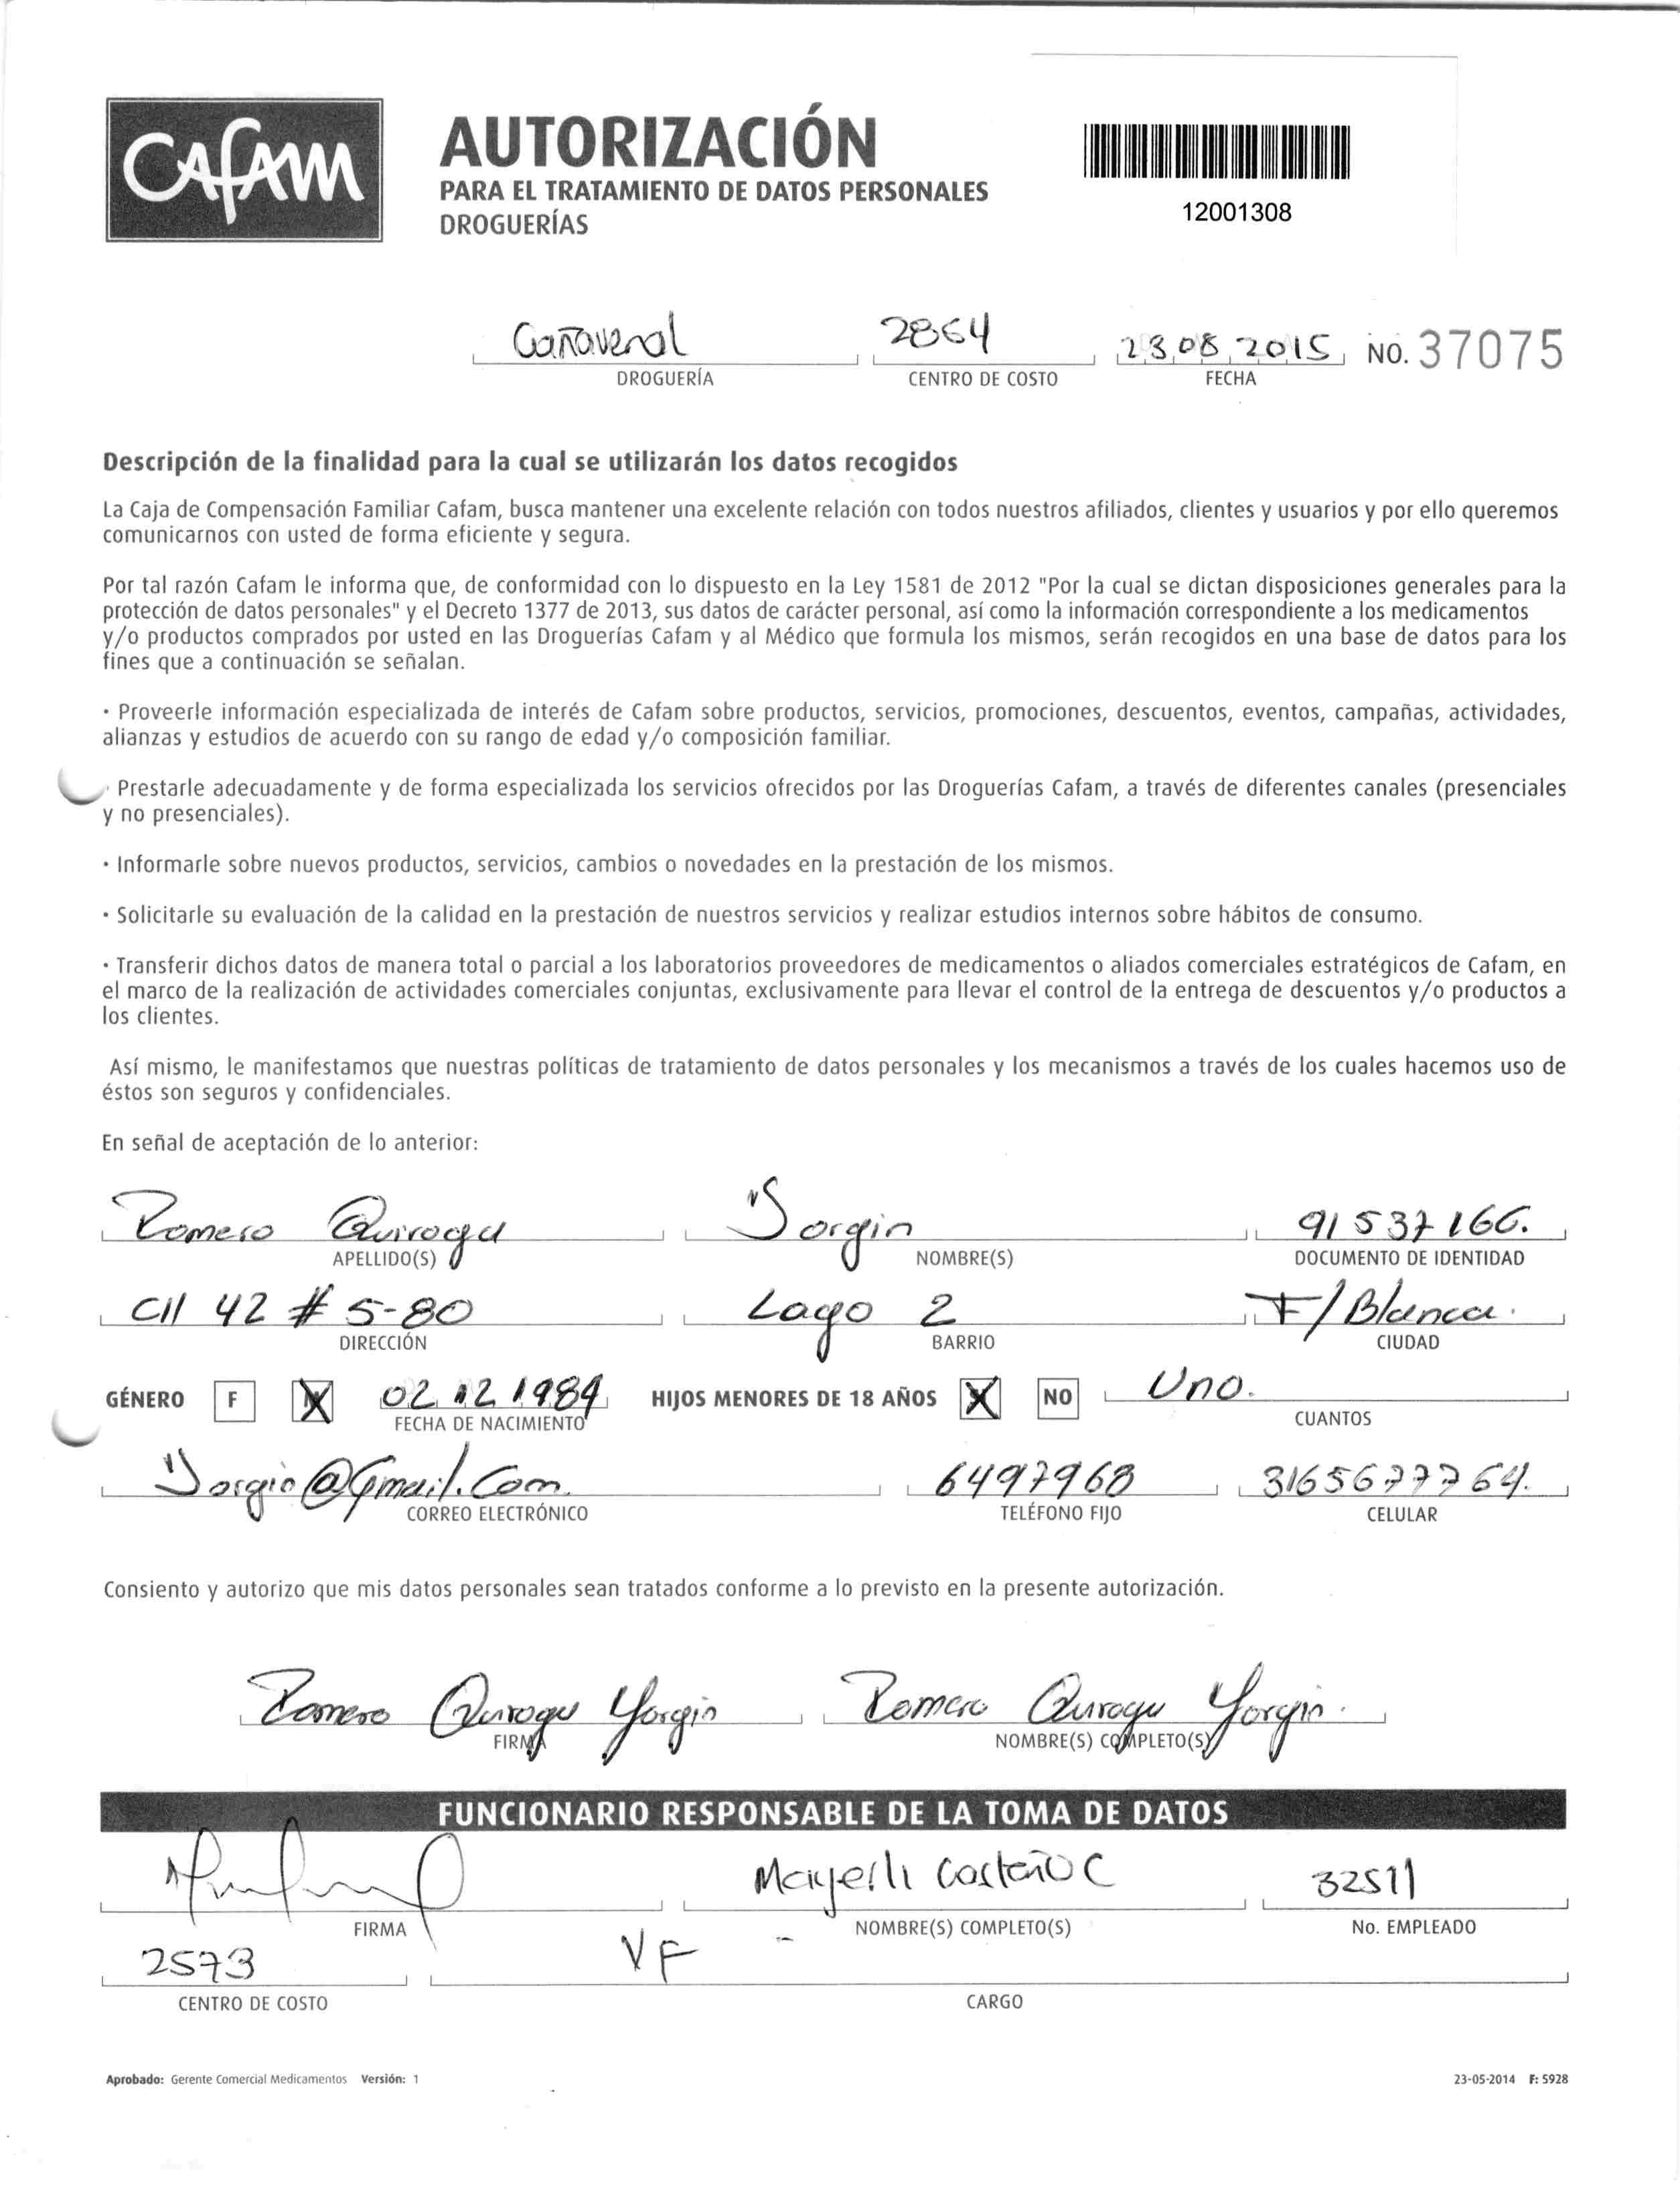 CAFAM
AUTORIZACIÓN
PARA EL TRATAMIENTO DE DATOS PERSONALES
DROGUERÍAS
12001308
Cañaveral 2864 23 08 2015 NO. 37075
DROGUERÍA CENTRO DE COSTO FECHA
Descripción de la finalidad para la cual se utilizarán los datos recogidos
La Caja de Compensación Familiar Cafam, busca mantener una excelente relación con todos nuestros afiliados, clientes y usuarios y por ello queremos
comunicarnos con usted de forma eficiente y segura.
Por tal razón Cafam le informa que, de conformidad con lo dispuesto en la Ley 1581 de 2012 "Por la cual se dictan disposiciones generales para la
protección de datos personales" y el Decreto 1377 de 2013, sus datos de carácter personal, así como la información correspondiente a los medicamentos
y/o productos comprados por usted en las Droguerías Cafam y al Médico que formula los mismos, serán recogidos en una base de datos para los
fines que a continuación se señalan.
· Proveerle información especializada de interés de Cafam sobre productos, servicios, promociones, descuentos, eventos, campañas, actividades,
alianzas y estudios de acuerdo con su rango de edad y/o composición familiar.
· Prestarle adecuadamente y de forma especializada los servicios ofrecidos por las Droguerías Cafam, a través de diferentes canales (presenciales
y no presenciales).
· Informarle sobre nuevos productos, servicios, cambios o novedades en la prestación de los mismos.
· Solicitarle su evaluación de la calidad en la prestación de nuestros servicios y realizar estudios internos sobre hábitos de consumo.
· Transferir dichos datos de manera total o parcial a los laboratorios proveedores de medicamentos o aliados comerciales estratégicos de Cafam, en
el marco de la realización de actividades comerciales conjuntas, exclusivamente para llevar el control de la entrega de descuentos y/o productos a
los clientes.
Así mismo, le manifestamos que nuestras políticas de tratamiento de datos personales y los mecanismos a través de los cuales hacemos uso de
éstos son seguros y confidenciales.
En señal de aceptación de lo anterior:
Romero Quiroga Yorgin 91 537 166.
APELLIDO(S) NOMBRE(S) DOCUMENTO DE IDENTIDAD
Cll 42 # 5-80 Lago 2 F/Blanca.
DIRECCIÓN BARRIO CIUDAD
GÉNERO F 02 12 1984 HIJOS MENORES DE 18 AÑOS NO Uno.
FECHA DE NACIMIENTO CUANTOS
Yorgin@Gmail.Com 6497968 3165677764.
CORREO ELECTRÓNICO TELÉFONO FIJO CELULAR
Consiento y autorizo que mis datos personales sean tratados conforme a lo previsto en la presente autorización.
Romero Quiroga Yorgin Romero Quiroga Yorgin.
FIRMA NOMBRE(S) COMPLETO(S)
FUNCIONARIO RESPONSABLE DE LA TOMA DE DATOS
Mayerli Castaño C 32511
FIRMA NOMBRE(S) COMPLETO(S) No. EMPLEADO
2573 VF -
CENTRO DE COSTO CARGO
Aprobado: Gerente Comercial Medicamentos Versión: 1 23-05-2014 F: 5928